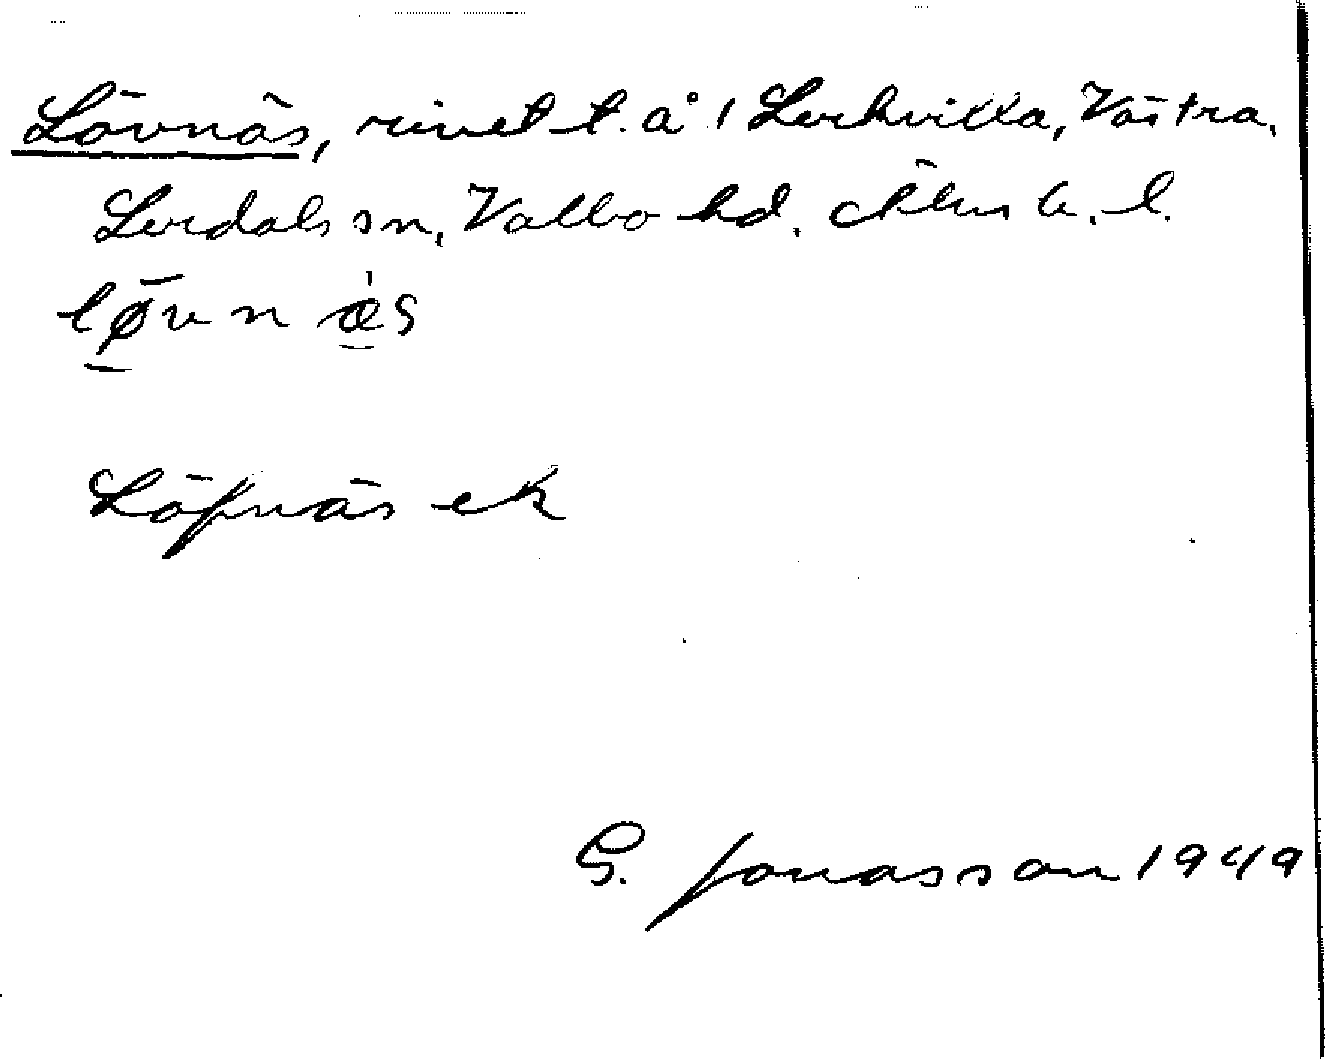 Lövnäs, rivet t. å 1 Lerkvilla, Västra,
Lerdals sn, Valbo hd. Älvsb. l.
lø̄vnæ̀s
Löfnäs ek
G. Jonasson 1949